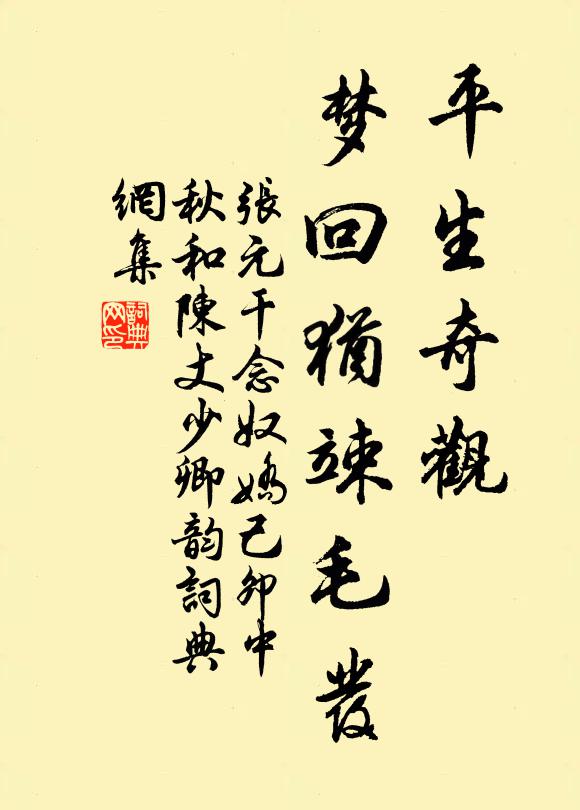 平生奇觀
梦回猶竦毛髮
張元干念奴嬌己卯中
秋和陳丈少卿韵詞典
網集
詞典
网印